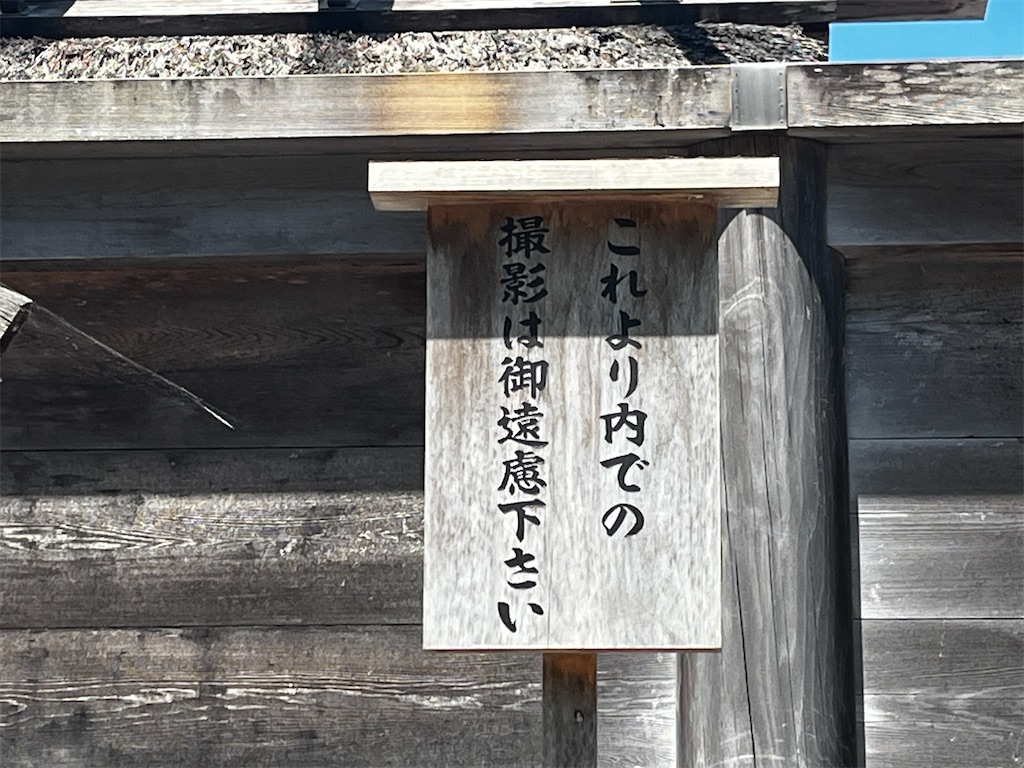 これより内での
撮影は御遠慮下さい